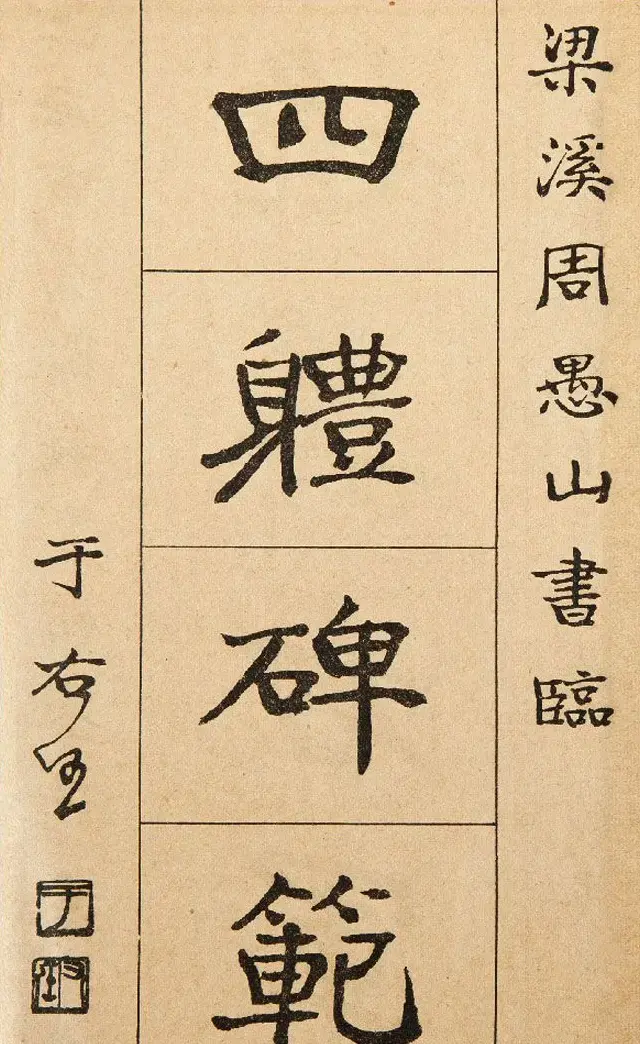 梁溪周愚山書臨
四軆碑範
于右任
于